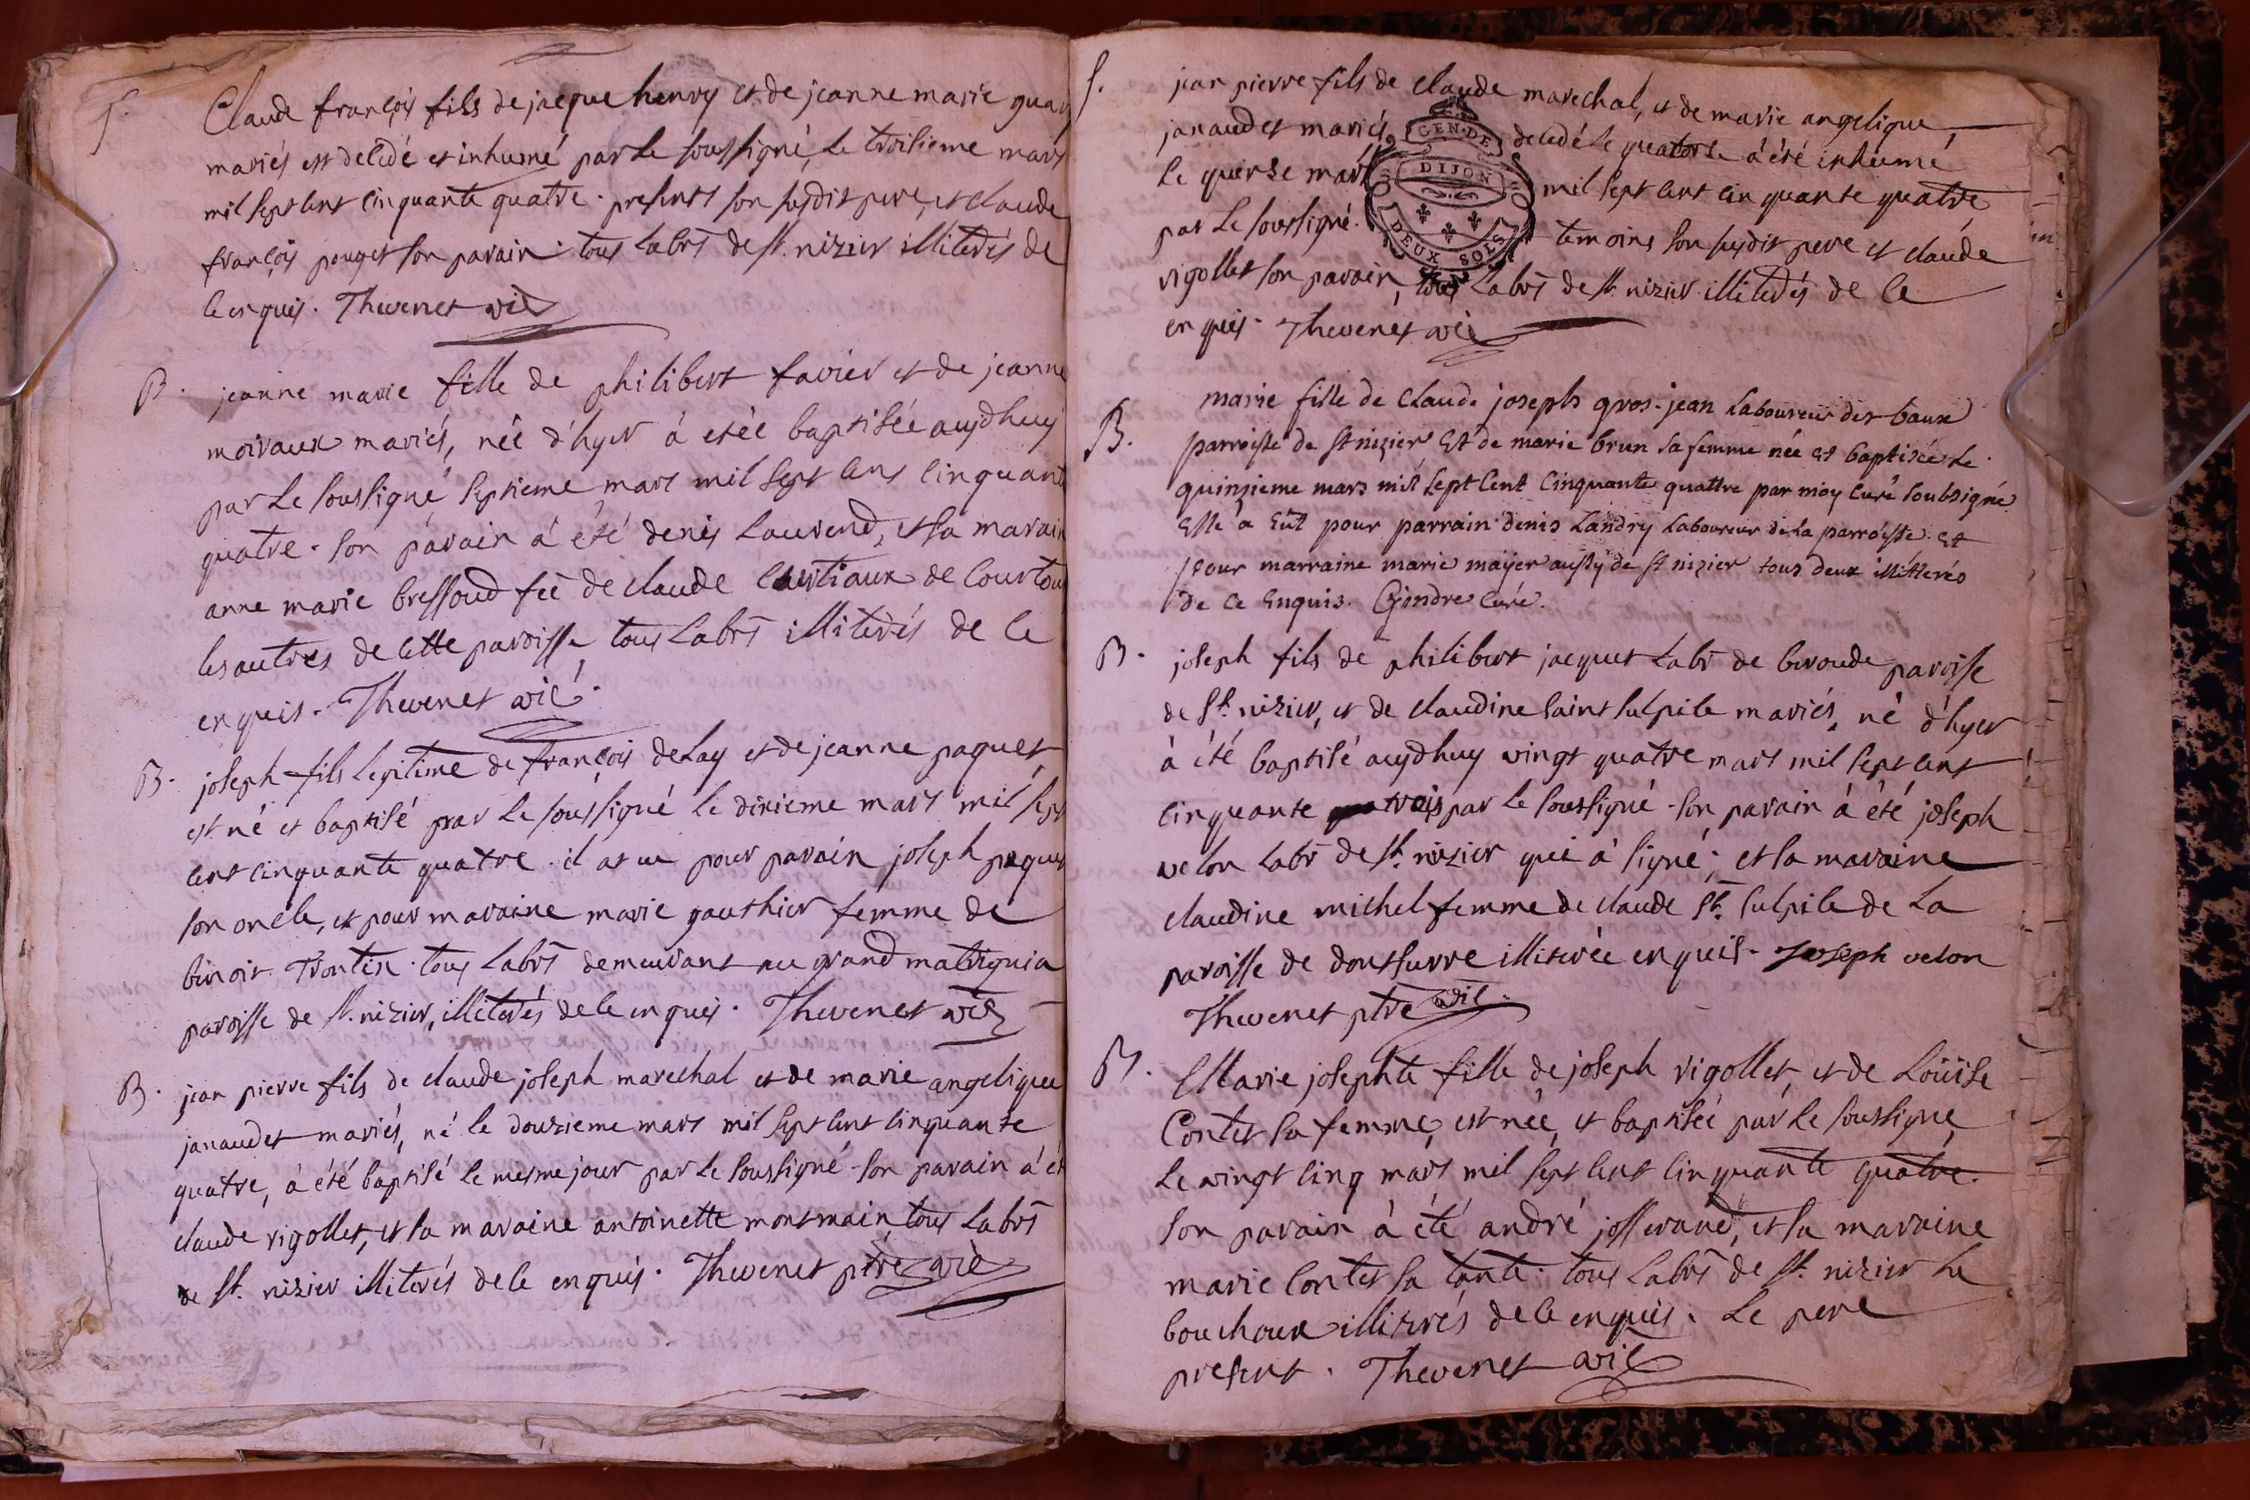 S.
Claude françois fils de jacque henry et de jeanne marie guay
mariés est decedé et inhumé par le soussigné, le troisieme mars
mil sept cent cinquante quatre. presents son susdit pere, et claude
françois pouget son parain. tous labrs de st. nizier illiterés de
ce enquis. Thevenet vic
B.
jeanne marie fille de philibert favier et de jeanne
moiraux mariés, née d'hyer á etée baptisée aujdhuy
par le soussigné septieme mars mil sept cens cinquante
quatre. son párain á été denis Laurend, et sa marain
anne marie bressoud fe de claude de Courtou
les autres de cette paroisse tous labrs illiterés de ce
enquis. Thevenet vic.
B.
joseph fils legitime de françois delay et de jeanne paquet
est né et baptisé par le soussigné le dixieme mars mil sept
cent cinquante quatre. il at eu pour parain joseph paquet
son oncle, et pour maraine marie gauthier femme de
benoit Trontin. tous labrs demeurant au grand matrignia
paroisse de st. nizier, illiterés de ce enquis. Thevenet vic
B.
jean pierre fils de claude joseph marechal et de marie angelique
janaudet mariés, né le douzieme mars mil sept cent cinquante
quatre, á été baptisé le mesme jour par le soussigné. son parain á été
claude rigollet, et sa maraine antoinette montmain, tous labrs
de st. nizier illiterés de ce enquis. Thevenet ptre vic
S.
jean pierre fils de claude marechal, et de marie angelique
janaudet mariés, decedé le quatorse á été inhumé
le quinse mars mil sept cent cinquante quatre
par le soussigné. temoins son susdit pere et claude
rigollet son parain, tous labrs de st. nizier illiterés de ce
enquis. Thevenet vic
GEN. DE
DIJON
DEUX SOLS
B.
marie fille de claude joseph gros-jean laboureur des baux
parroisse de st nizier, Et de marie brun sa femme née et baptisée le
quinzieme mars mil sept cent cinquante quattre par moy curé soubsigné
elle a eüt pour parrain denis Landry laboureur de la parroisse. et
pour marraine marie mayer aussy de st nizier tous deux illitterés
de ce enquis. Gindre curé.
B.
joseph fils de philibert jacquet labr de beroude paroisse
de st. nizier, et de claudine saint sulpice mariés, né d'hyer
á été baptisé aujdhuy vingt quatre mars mil sept cent
cinquante par le soussigné. son parain á été joseph
velon labr de st. nizier qui á signé; et sa maraine
claudine michel femme de claude st. sulpice de la
paroisse de domsurre illiterée enquis. Joseph velon
Thevenet ptre vic.
B.
Marie josephte fille de joseph rigollet, et de Loüise
Contet sa femme, est née, et baptisée par le soussigné
le vingt cinq mars mil sept cent cinquante quatre.
son parain á été andré josserand, et sa maraine
marie contet sa tante. tous labrs de st. nizier le
bouchoux illiterés de ce enquis. Le pere
present. Thevenet vic